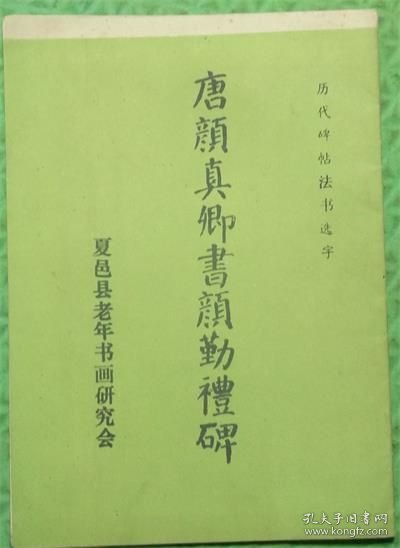 历代碑帖法书选字
唐顔真卿書顔勤禮碑
夏邑县老年书画研究会
孔夫子旧书网